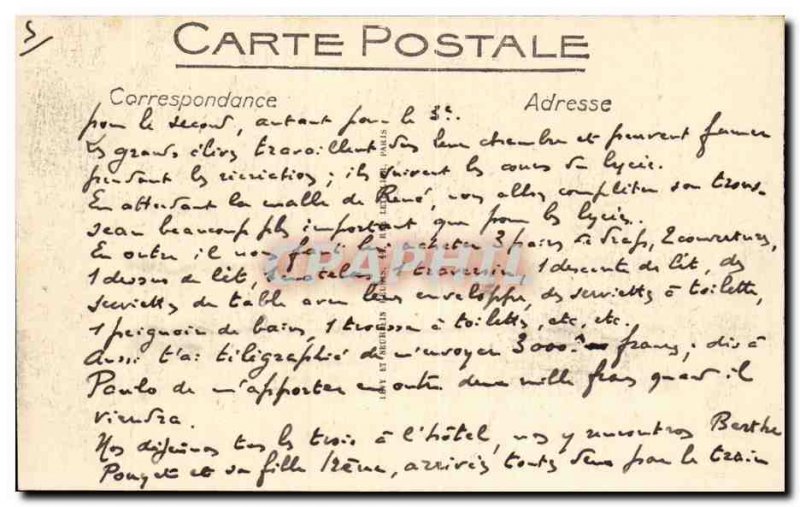 5
CARTE POSTALE
Correspondance
Adresse
pour le second, autant pour le 3e.
Les grands élèves travaillent dans leur chambre et peuvent fumer
pendant les récréations ; ils suivent les cours du lycée.
En attendant la malle de René, nous allons compléter son trous-
seau beaucoup plus important que pour les lycées.
En outre il nous faut lui acheter 3 paires de draps, 2 couvertures,
1 dessus de lit, 1 matelas, 1 traversin, 1 descente de lit, des
serviettes de table avec leur enveloppe, des serviettes à toilette,
1 peignoir de bains, 1 trousse à toilette, etc, etc.
Aussi t'ai télégraphié de m'envoyer 3000 francs ; dis à
Paulo de m'apporter en outre deux mille francs quand il
viendra.
Nos déjeunons tous les trois à l'hôtel, nous y rencontrons Berthe
Pouget et sa fille Irène, arrivées toutes deux par le train
LEVY ET NEURDEIN RÉUNIS, 44, RUE LETELLIER, PARIS
CPAPHIL